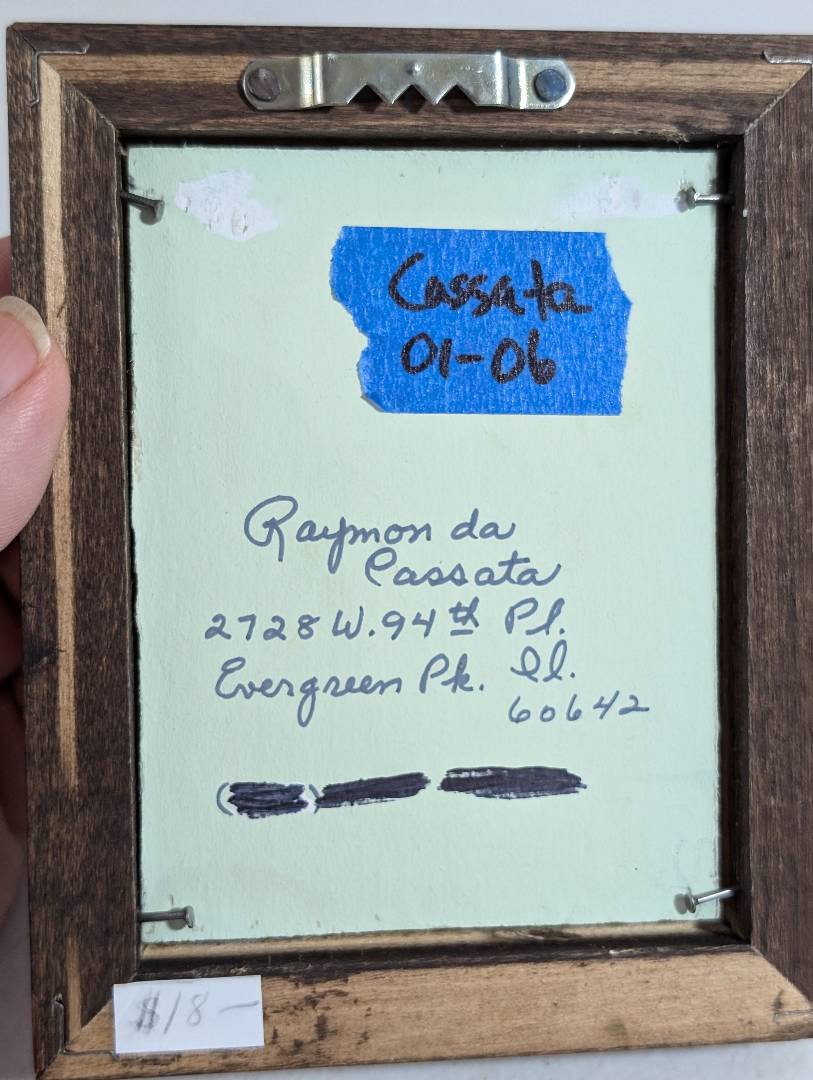 Cassata
01-06
Raymon da
Cassata
2728 W. 94th Pl.
Evergreen Pk. Il.
60642
$18-